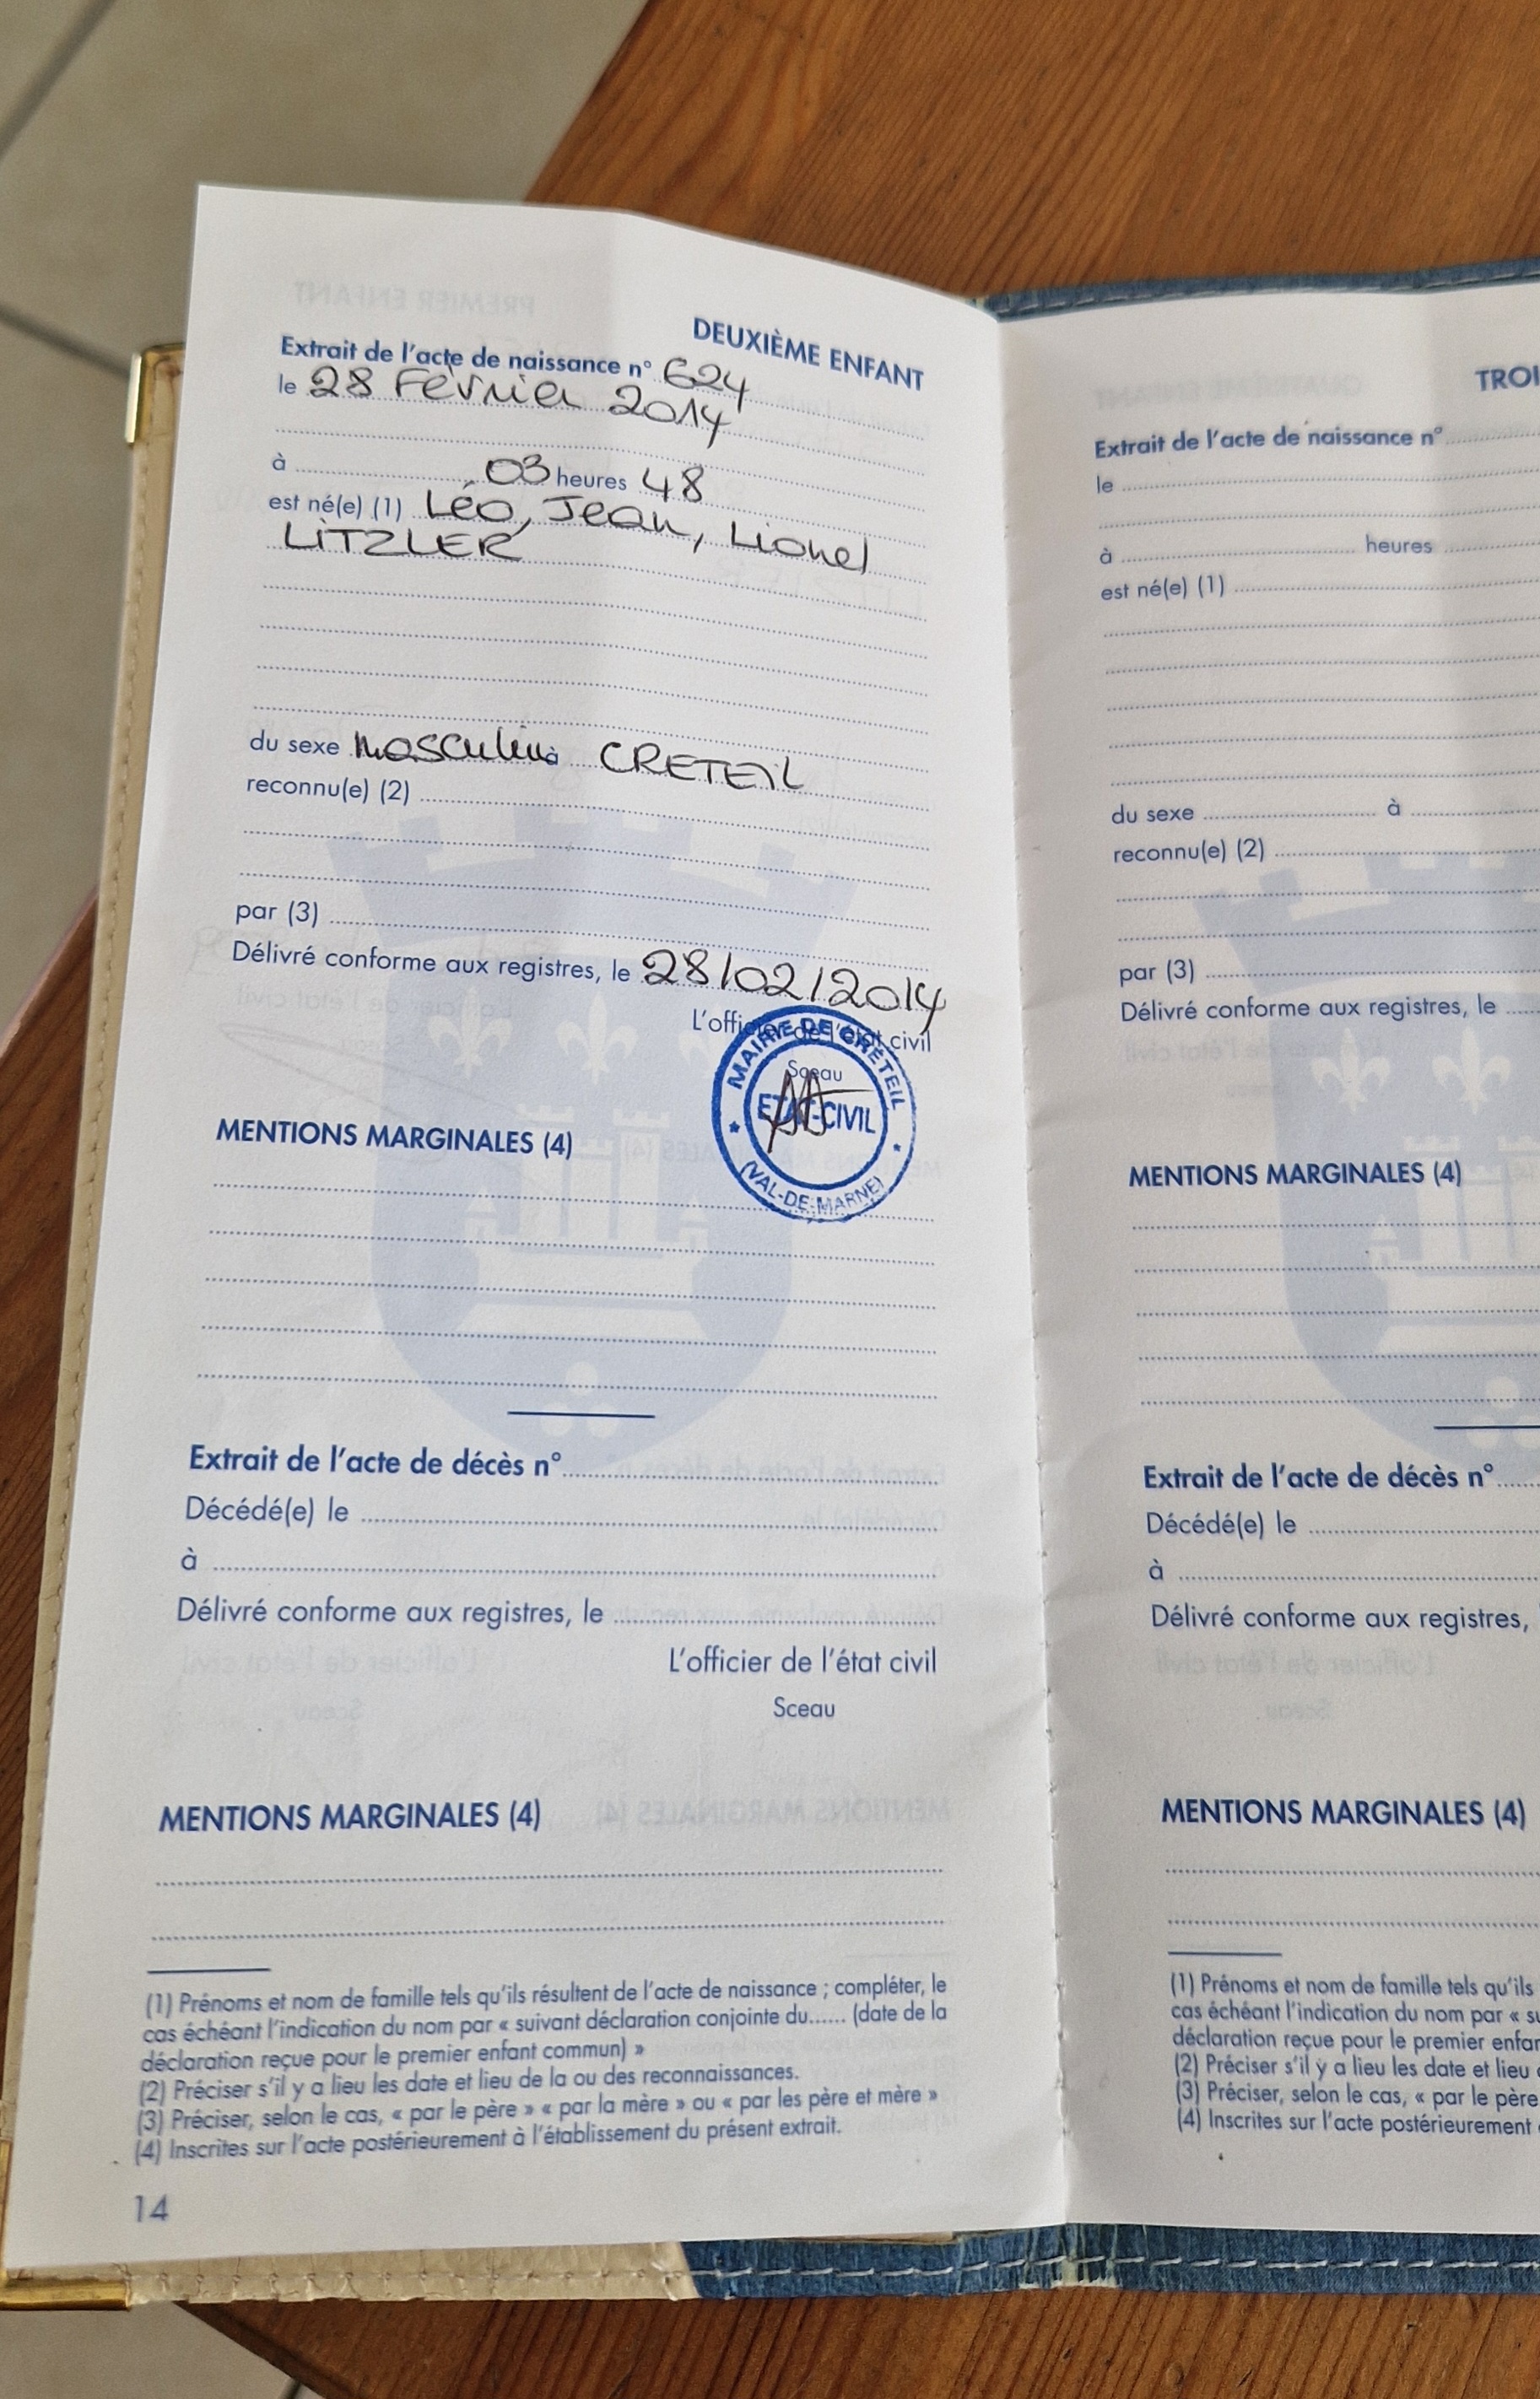 DEUXIÈME ENFANT
Extrait de l'acte de naissance n° 624
le 28 Février 2014
à 03 heures 48
est né(e) (1) Léo, Jean, Lionel
LITZLER
du sexe masculin à CRETEIL
reconnu(e) (2)
par (3)
Délivré conforme aux registres, le 28/02/2014
L'officier de l'état civil
Sceau
MAIRIE DE CRÉTEIL
ETAT-CIVIL
(VAL-DE-MARNE)
MENTIONS MARGINALES (4)
Extrait de l'acte de décès n°
Décédé(e) le
à
Délivré conforme aux registres, le
L'officier de l'état civil
Sceau
MENTIONS MARGINALES (4)
(1) Prénoms et nom de famille tels qu'ils résultent de l'acte de naissance ; compléter, le
cas échéant l'indication du nom par « suivant déclaration conjointe du...... (date de la
déclaration reçue pour le premier enfant commun) »
(2) Préciser s'il y a lieu les date et lieu de la ou des reconnaissances.
(3) Préciser, selon le cas, « par le père » « par la mère » ou « par les père et mère »
(4) Inscrites sur l'acte postérieurement à l'établissement du présent extrait.
14
TROI
Extrait de l'acte de naissance n°
le
à heures
est né(e) (1)
du sexe à
reconnu(e) (2)
par (3)
Délivré conforme aux registres, le
MENTIONS MARGINALES (4)
Extrait de l'acte de décès n°
Décédé(e) le
à
Délivré conforme aux registres,
MENTIONS MARGINALES (4)
(1) Prénoms et nom de famille tels qu'ils
cas échéant l'indication du nom par « su
déclaration reçue pour le premier enfan
(2) Préciser s'il y a lieu les date et lieu
(3) Préciser, selon le cas, « par le père
(4) Inscrites sur l'acte postérieurement